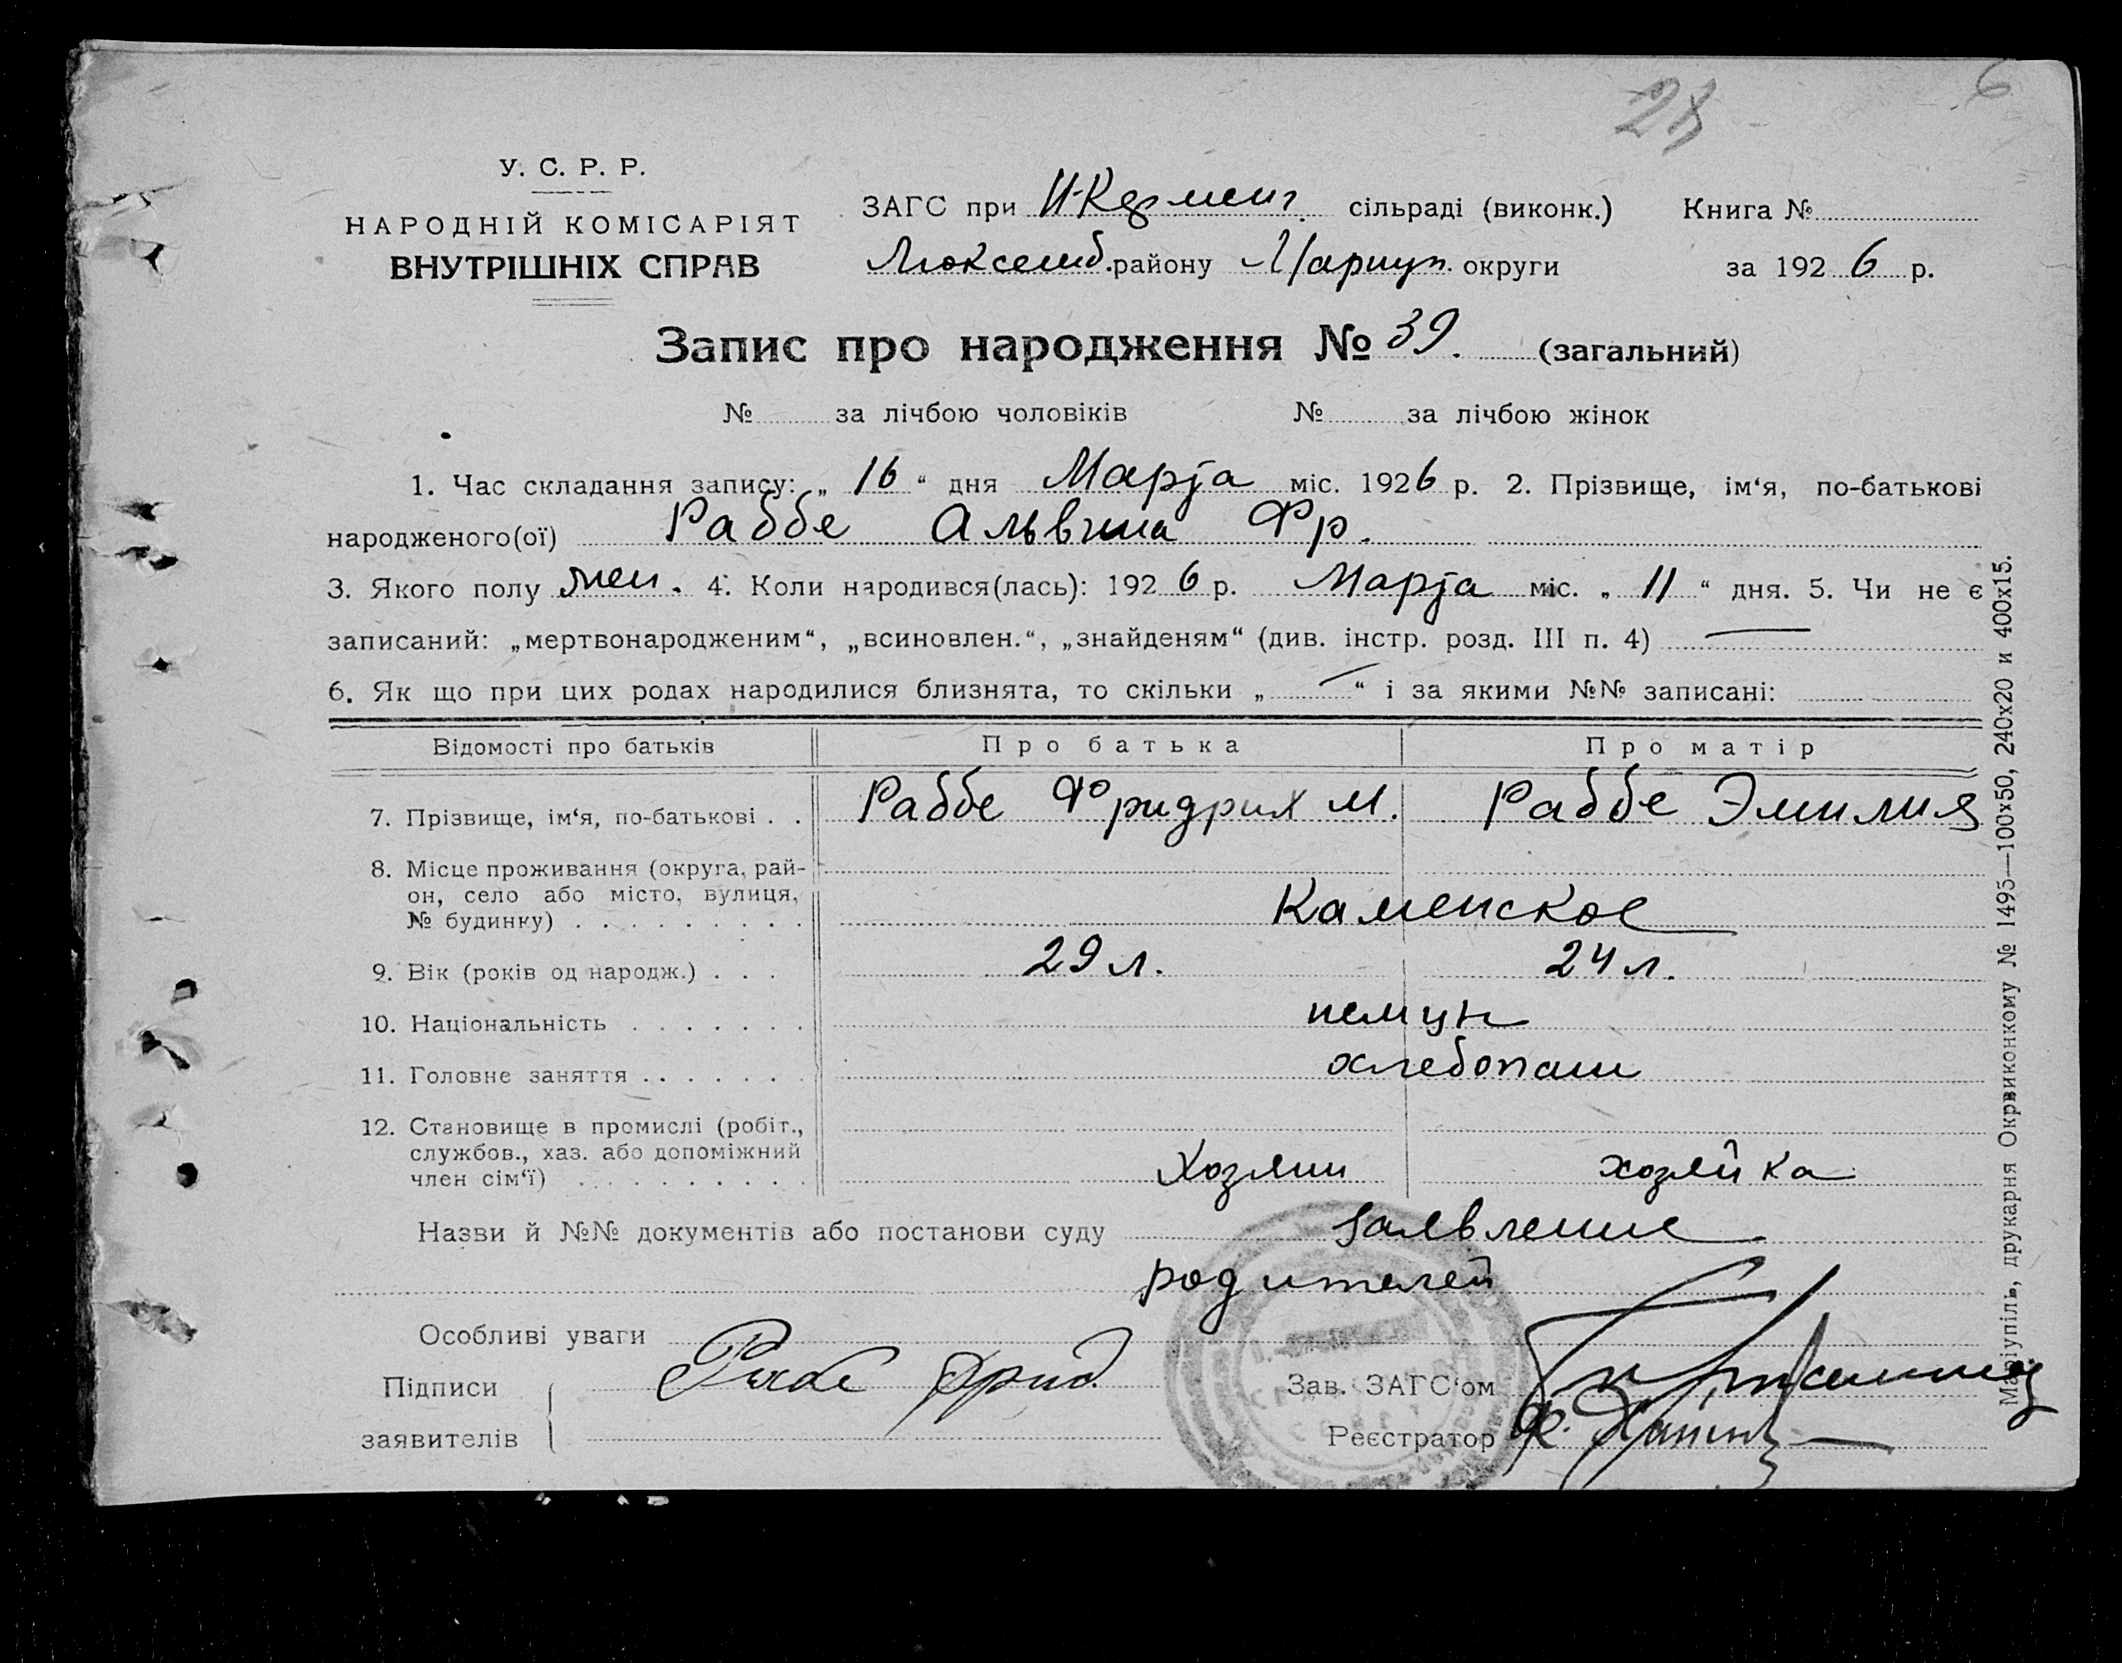 28
6
У. С. Р. Р.
НАРОДНІЙ КОМІСАРІЯТ
ВНУТРІШНІХ СПРАВ
ЗАГС при И-Кермент. сільраді (виконк.) Книга №
Люксемб. району Мариуп. округи за 1926 р.
Запис про народження № 39. (загальний)
№ за лічбою чоловіків № за лічбою жінок
1. Час складання запису: „ 16 “ дня Марта міс. 1926 р. 2. Прізвище, ім‘я, по-батькові
народженого(ої) Раббе Альвина Фр.
3. Якого полу жен. 4. Коли народився(лась): 1926 р. Марта міс. „ 11 “ дня. 5. Чи не є
записаний: „мертвонародженим“, „всиновлен.“, „знайденям“ (див. інстр. розд. III п. 4) —
6. Як що при цих родах народилися близнята, то скільки „ — “ і за якими №№ записані:
Відомості про батьків Про батька Про матір
7. Прізвище, ім‘я, по-батькові . . Раббе Фридрих М. Раббе Эмилия
8. Місце проживання (округа, рай-
он, село або місто, вулиця,
№ будинку) . . . . . . . . . Каменское
9. Вік (років од народж.) . . . 29 л. 24 л.
10. Національність . . . . . . . немцы
11. Головне заняття . . . . . . . хлебопаш
12. Становище в промислі (робіт.,
службов., хаз. або допоміжний
член сім‘ї) . . . . . . . . . Хозяин хозяйка
Назви й №№ документів або постанови суду заявление
родителей
Особливі уваги
Підписи Раббе Фрид.
заявителів
Зав. ЗАГС‘ом
Реєстратор
Маріупіль, друкарня Окрвиконкому № 1495—100x50, 240x20 и 400x15.